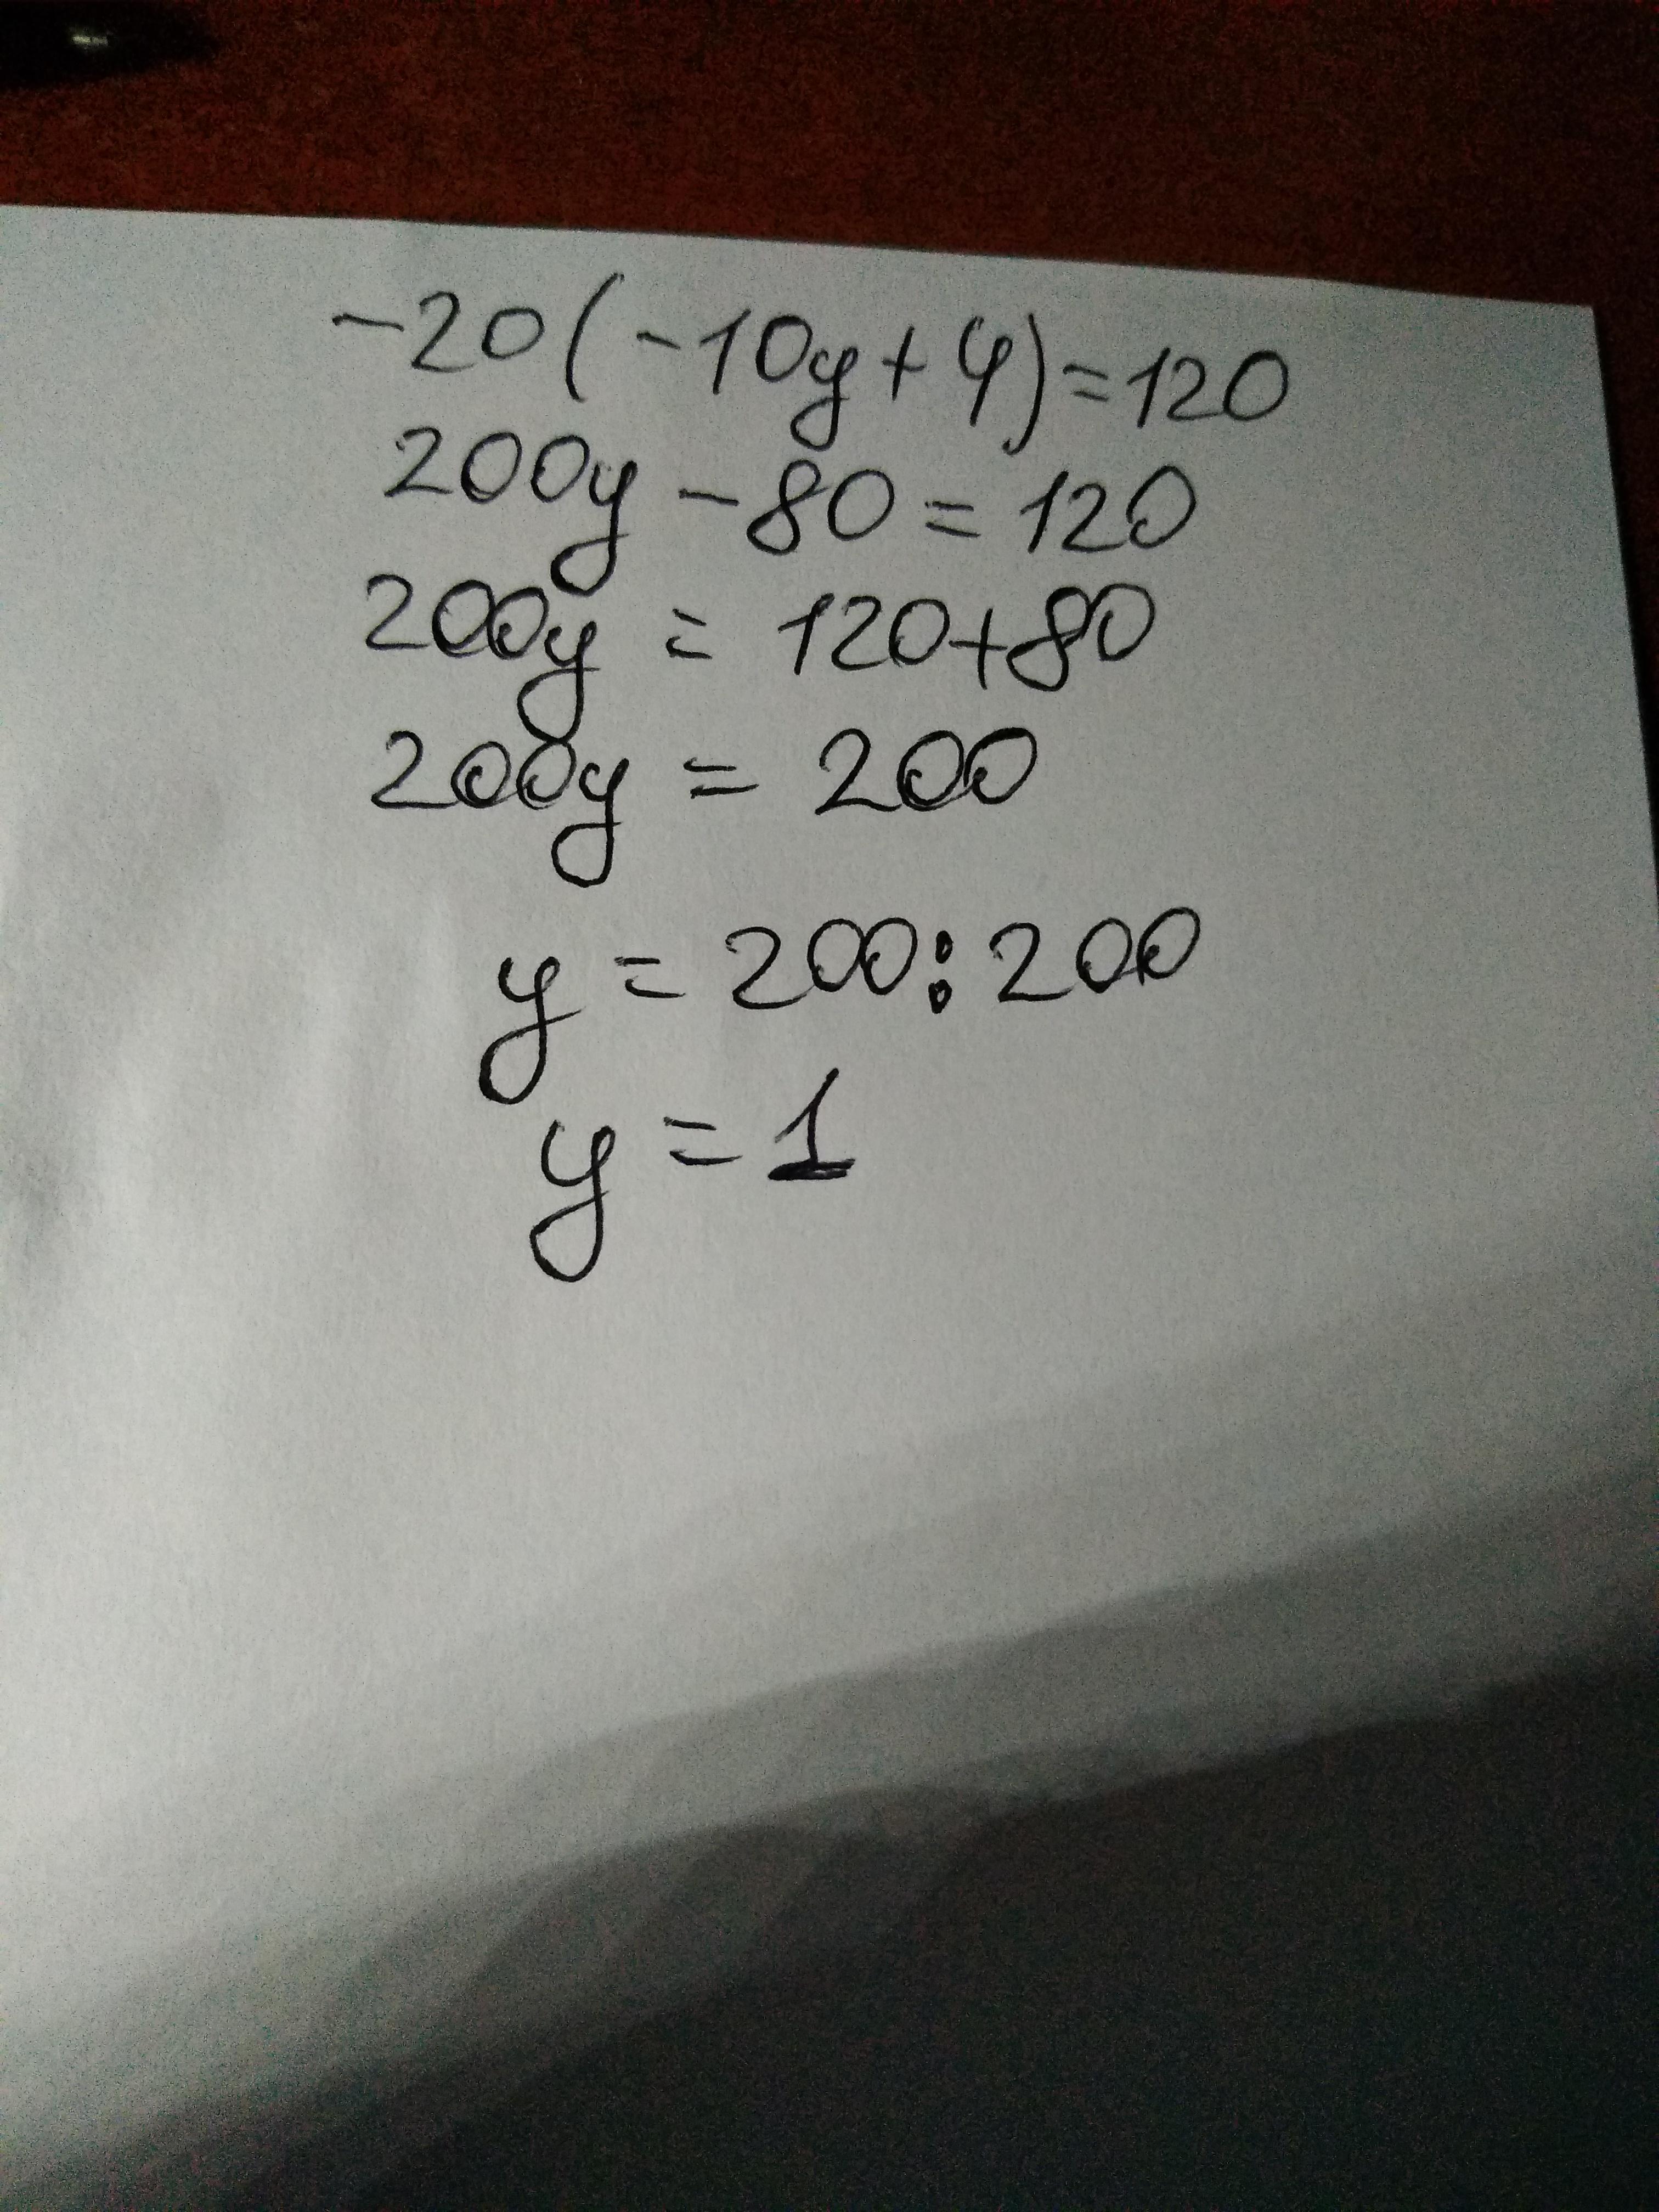 -20(-10y+4)=120
200y-80=120
200y=120+80
200y=200
y=200:200
y=1